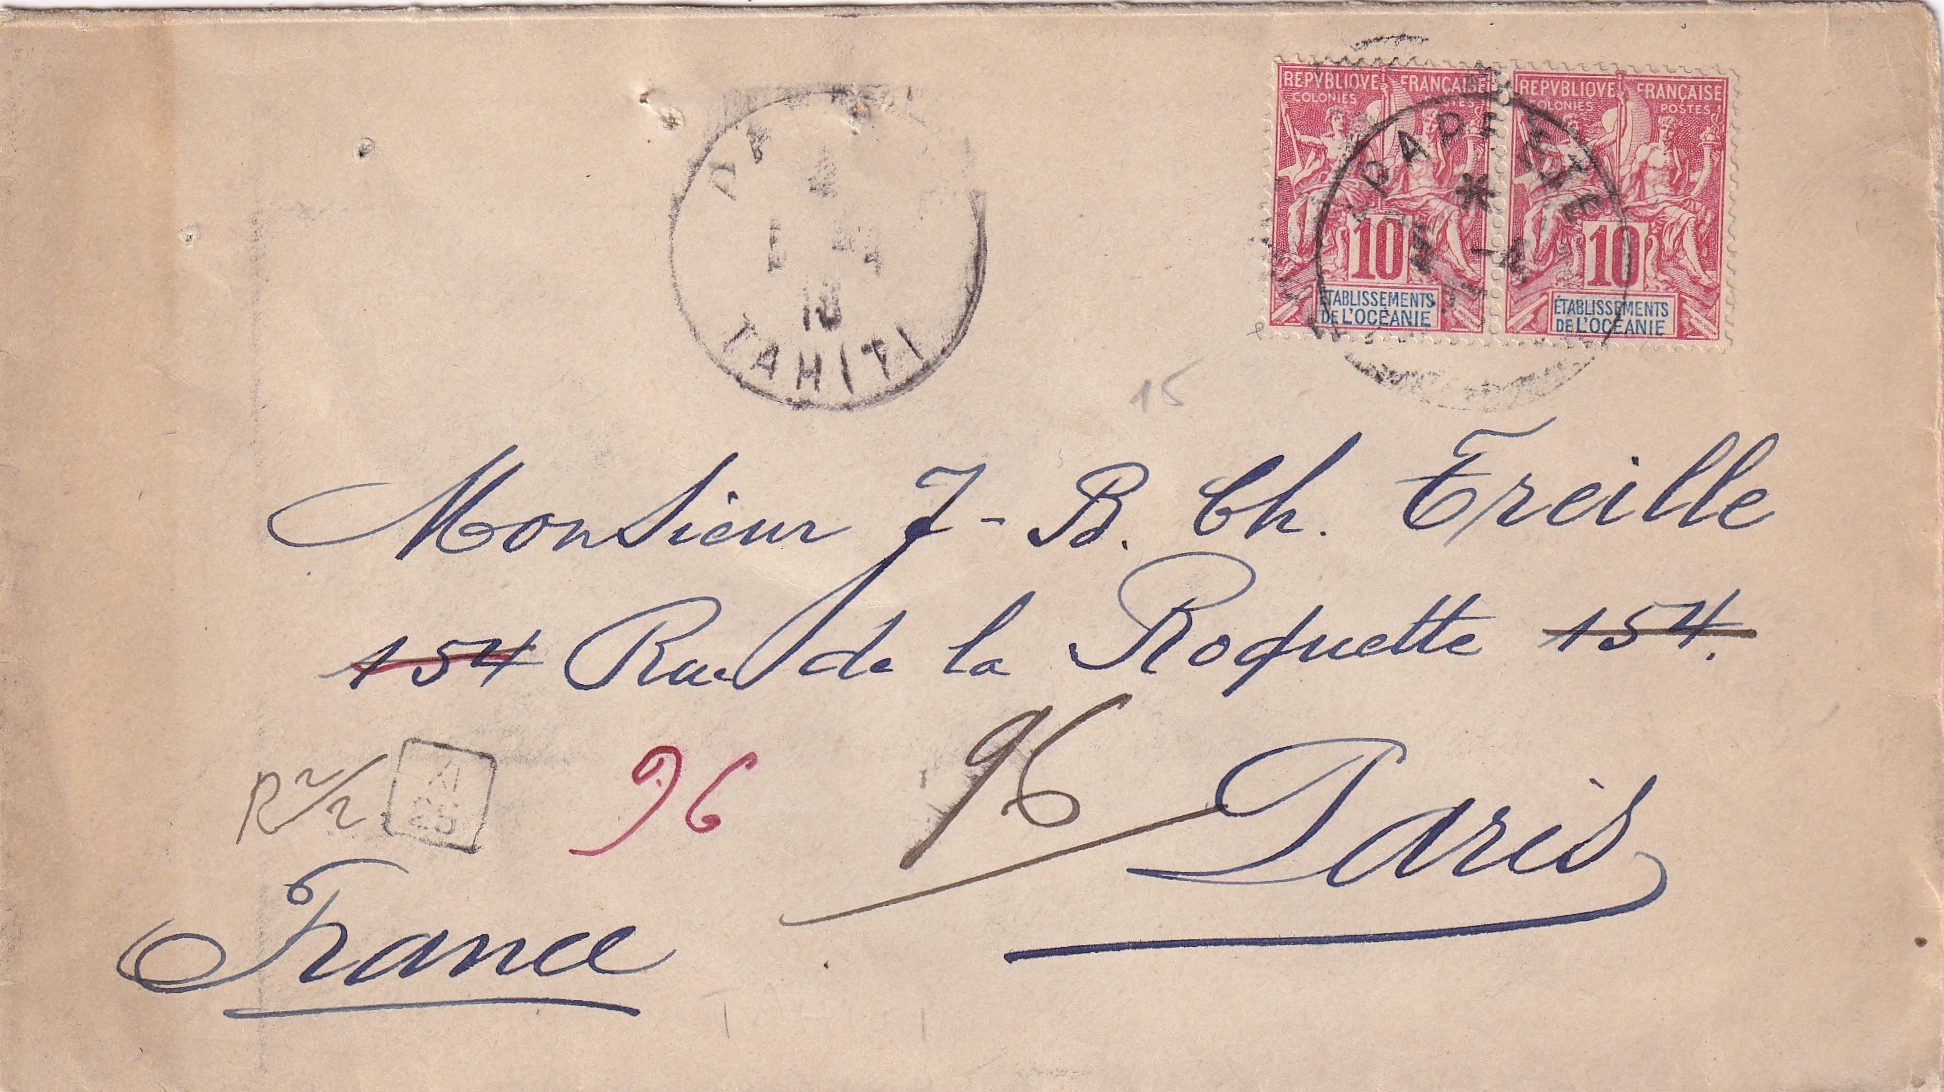 REPVBLIQVE FRANÇAISE
COLONIES POSTES
10
ÉTABLISSEMENTS
DE L'OCÉANIE
REPVBLIQVE FRANÇAISE
COLONIES POSTES
10
ÉTABLISSEMENTS
DE L'OCÉANIE
PAPEETE
TAHITI
15
Monsieur J-B. Ch. Treille
154 Rue de la Roquette 154.
96 96
R 2/2
Paris
France